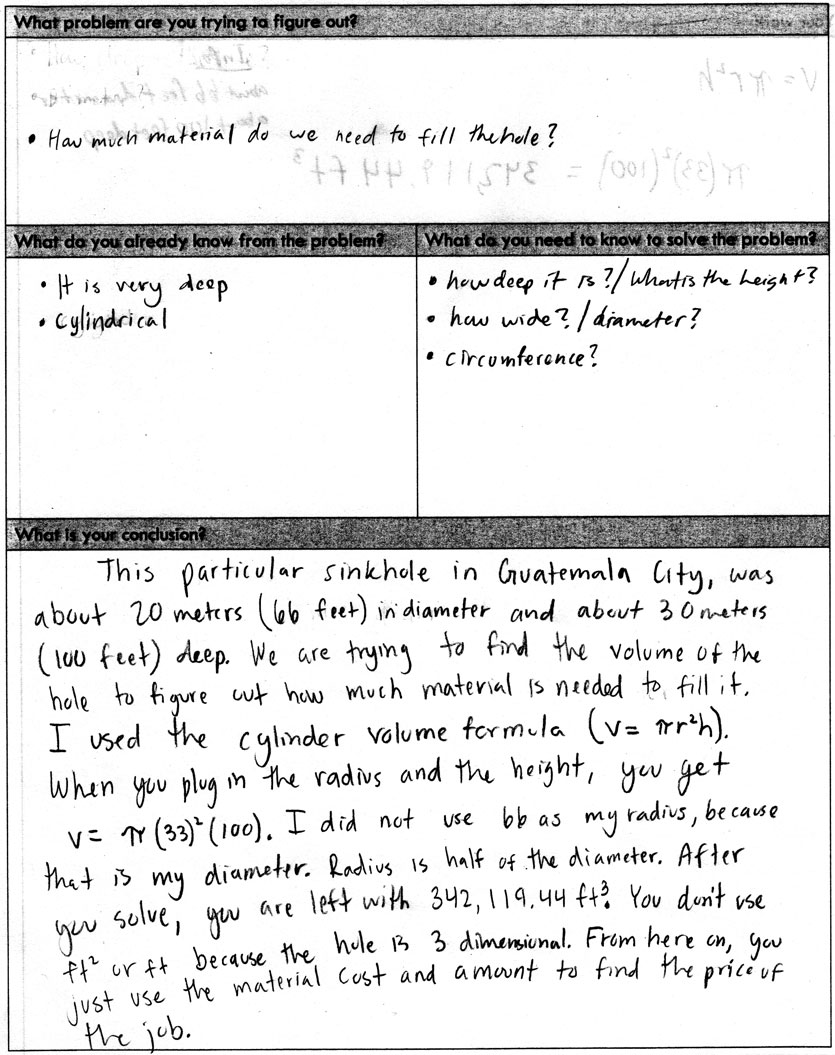 What problem are you trying to figure out?
• How much material do we need to fill the hole?
What do you already know from the problem?
• It is very deep
• cylindrical
What do you need to know to solve the problem?
• how deep it is?/What is the height?
• how wide?/diameter?
• circumference?
What is your conclusion?
This particular sinkhole in Guatemala City, was
about 20 meters (66 feet) in diameter and about 30 meters
(100 feet) deep. We are trying to find the volume of the
hole to figure out how much material is needed to fill it.
I used the cylinder volume formula (v= πr²h).
When you plug in the radius and the height, you get
v= π(33)²(100). I did not use 66 as my radius, because
that is my diameter. Radius is half of the diameter. After
you solve, you are left with 342,119.44 ft³. You don't use
ft² or ft because the hole is 3 dimensional. From here on, you
just use the material cost and amount to find the price of
the job.